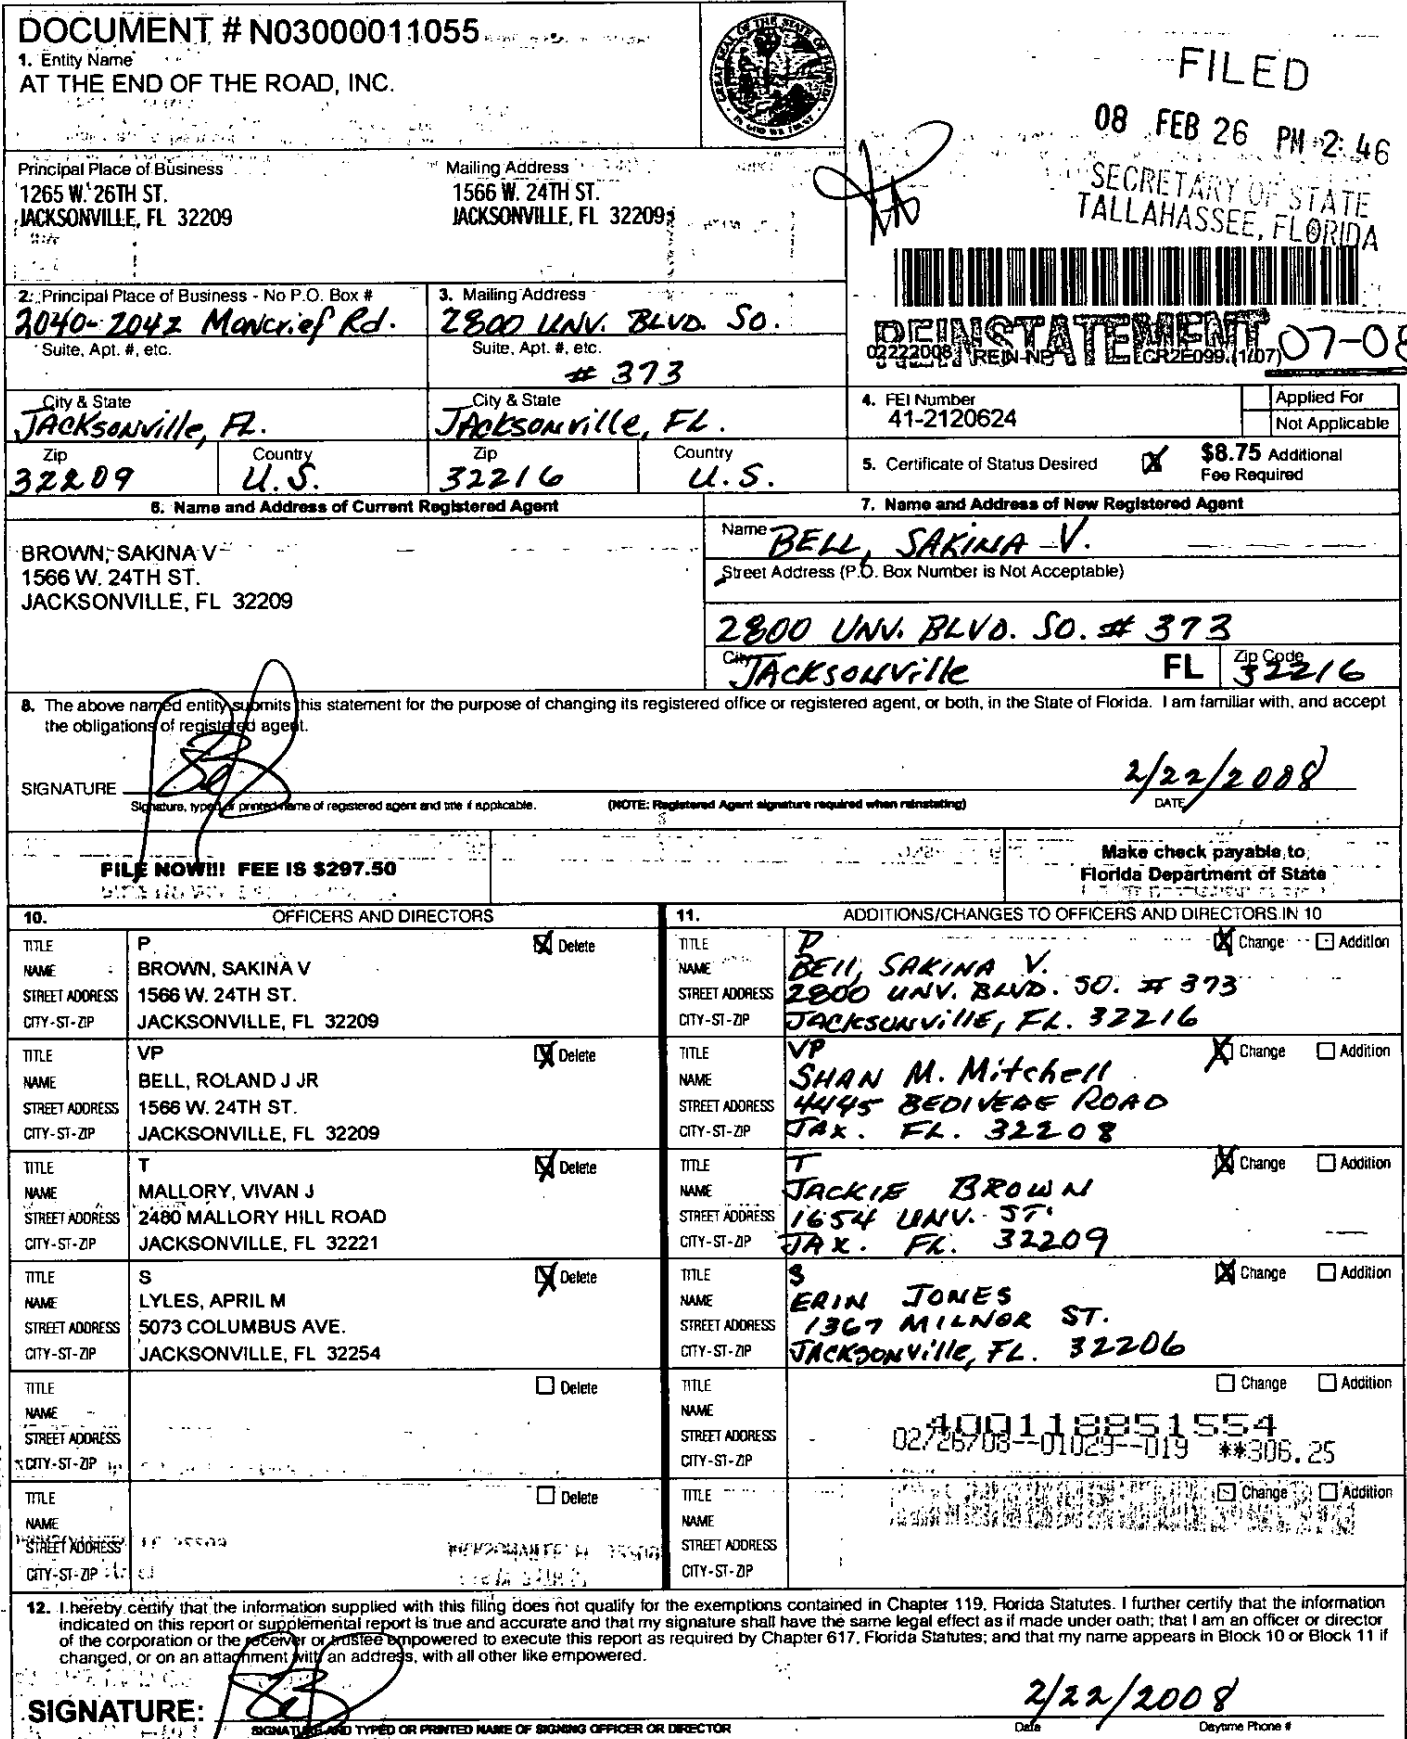 DOCUMENT # N03000011055
1. Entity Name
AT THE END OF THE ROAD, INC.
GREAT SEAL OF THE STATE OF FLORIDA
IN GOD WE TRUST
FILED
08 FEB 26 PM 2:46
SECRETARY OF STATE
TALLAHASSEE, FLORIDA
Principal Place of Business
1265 W. 26TH ST.
JACKSONVILLE, FL 32209
Mailing Address
1566 W. 24TH ST.
JACKSONVILLE, FL 32209
2. Principal Place of Business - No P.O. Box #
2040-2042 Moncrief Rd.
3. Mailing Address
2800 UNV. BLVD. SO.
Suite, Apt. #, etc.
Suite, Apt. #, etc.
# 373
REINSTATEMENT 07-08
02222008 REIN-NP CR2E099 (1/07)
City & State
JACKSONville, FL.
City & State
JACKSONville, FL.
Zip
32209
Country
U.S.
Zip
32216
Country
U.S.
4. FEI Number
41-2120624
Applied For
Not Applicable
5. Certificate of Status Desired X $8.75 Additional
Fee Required
6. Name and Address of Current Registered Agent
BROWN, SAKINA V
1566 W. 24TH ST.
JACKSONVILLE, FL 32209
7. Name and Address of New Registered Agent
Name BELL, SAKINA V.
Street Address (P.O. Box Number is Not Acceptable)
2800 UNV. BLVD. SO. # 373
City JACKSONville FL Zip Code 32216
8. The above named entity submits this statement for the purpose of changing its registered office or registered agent, or both, in the State of Florida. I am familiar with, and accept
the obligations of registered agent.
SIGNATURE 2/22/2008
Signature, typed or printed name of registered agent and title if applicable. (NOTE: Registered Agent signature required when reinstating) DATE
FILE NOW!!! FEE IS $297.50
Make check payable to
Florida Department of State
10. OFFICERS AND DIRECTORS
TITLE P X Delete
NAME BROWN, SAKINA V
STREET ADDRESS 1566 W. 24TH ST.
CITY-ST-ZIP JACKSONVILLE, FL 32209
TITLE VP X Delete
NAME BELL, ROLAND J JR
STREET ADDRESS 1566 W. 24TH ST.
CITY-ST-ZIP JACKSONVILLE, FL 32209
TITLE T X Delete
NAME MALLORY, VIVAN J
STREET ADDRESS 2480 MALLORY HILL ROAD
CITY-ST-ZIP JACKSONVILLE, FL 32221
TITLE S X Delete
NAME LYLES, APRIL M
STREET ADDRESS 5073 COLUMBUS AVE.
CITY-ST-ZIP JACKSONVILLE, FL 32254
TITLE Delete
NAME
STREET ADDRESS
CITY-ST-ZIP
TITLE Delete
NAME
STREET ADDRESS
CITY-ST-ZIP
11. ADDITIONS/CHANGES TO OFFICERS AND DIRECTORS IN 10
TITLE P X Change Addition
NAME BEll, SAKINA V.
STREET ADDRESS 2800 UNV. BLVD. SO. # 373
CITY-ST-ZIP JACKSONVillE, FL. 32216
TITLE VP X Change Addition
NAME SHAN M. Mitchell
STREET ADDRESS 4445 BEDIVERE ROAD
CITY-ST-ZIP JAX. FL. 32208
TITLE T X Change Addition
NAME JACKIE BROWN
STREET ADDRESS 1654 UNV. ST.
CITY-ST-ZIP JAX. FL. 32209
TITLE S X Change Addition
NAME ERIN JONES
STREET ADDRESS 1367 MILNOR ST.
CITY-ST-ZIP JACKSONVille, FL. 32206
TITLE Change Addition
NAME
400118851554
STREET ADDRESS 02/26/08--01029--019 **306.25
CITY-ST-ZIP
TITLE Change Addition
NAME
STREET ADDRESS
CITY-ST-ZIP
12. I hereby certify that the information supplied with this filing does not qualify for the exemptions contained in Chapter 119, Florida Statutes. I further certify that the information
indicated on this report or supplemental report is true and accurate and that my signature shall have the same legal effect as if made under oath; that I am an officer or director
of the corporation or the receiver or trustee empowered to execute this report as required by Chapter 617, Florida Statutes; and that my name appears in Block 10 or Block 11 if
changed, or on an attachment with an address, with all other like empowered.
SIGNATURE: 2/22/2008
SIGNATURE AND TYPED OR PRINTED NAME OF SIGNING OFFICER OR DIRECTOR Date Daytime Phone #